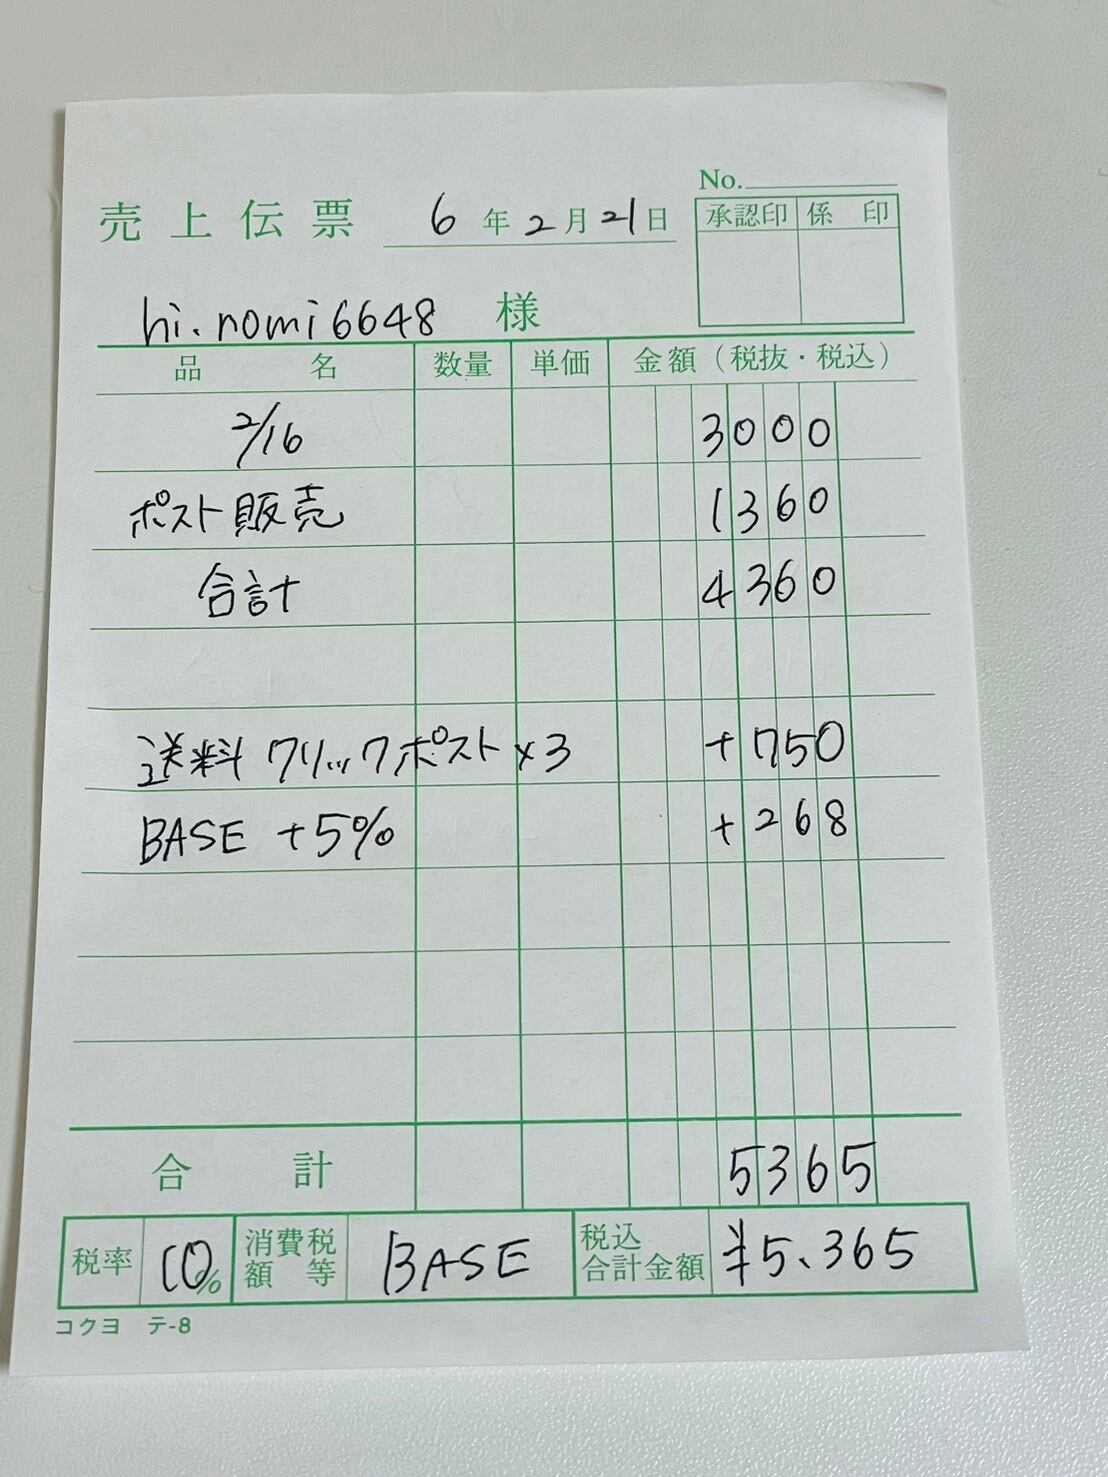 No.
売上伝票 6年2月21日
承認印 係印
hi.nomi6648 様
品名 数量 単価 金額(税抜・税込)
2/16 3000
ポスト販売 1360
合計 4360
送料 クリックポスト×3 +750
BASE +5% +268
合計 5365
税率 10% 消費税額等 BASE 税込合計金額 ¥5.365
コクヨ テ-8